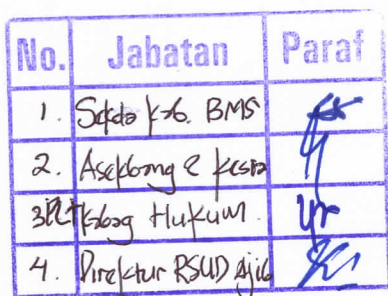 No. Jabatan Paraf
1. Sekda Kab. BMS
2. Asekbang & Kesra
3 Plt Kabag Hukum.
4. Direktur RSUD Ajib